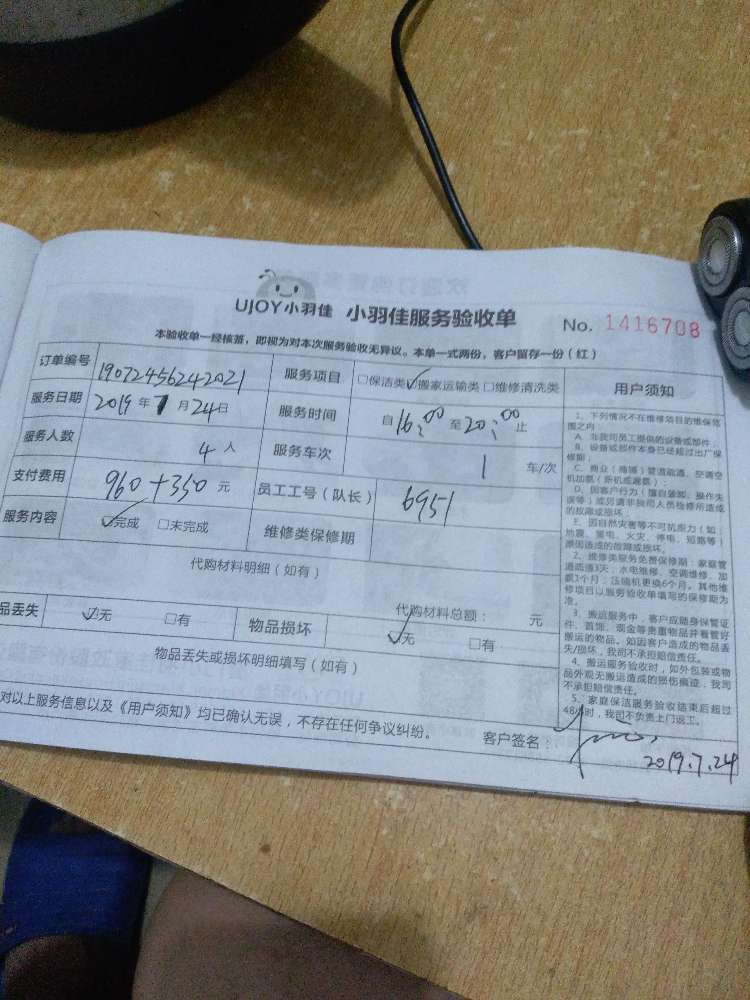 UJOY小羽佳 小羽佳服务验收单 No. 1416708
本验收单一经核签，即视为对本次服务验收无异议。本单一式两份，客户留存一份（红）
订单编号 19072456242021 服务项目 □保洁类 ☑搬家运输类 □维修清洗类
服务日期 2019年7月24日 服务时间 自16:00至20:00止
服务人数 4人 服务车次 1 车/次
支付费用 960+350元 员工工号（队长） 6951
服务内容 ☑完成 □未完成 维修类保修期
代购材料明细（如有）
代购材料总额： 元
品丢失 ☑无 □有 物品损坏 ☑无 □有
物品丢失或损坏明细填写（如有）
对以上服务信息以及《用户须知》均已确认无误，不存在任何争议纠纷。 客户签名：
2019.7.24
用户须知
1、下列情况不在维修项目的维保范
围之内：
A、非我司员工提供的设备或部件；
B、设备或部件本身已经超过出厂保
修期；
C、商业（商铺）管道疏通、空调空
机加氨（新机或漏氨）；
D、因客户行为（擅自装卸、操作失
误等）或另请非我司人员检修所造成
的故障或损坏。
E、因自然灾害等不可抗原力（如：
地震、雷电、火灾、停电、短路等）
原因造成的故障或损坏。
2、维修类服务免费保修期：家庭管
道疏通3天；水电维修、空调维修、加
氨1个月；压缩机更换6个月。其他维
修项目以服务验收单填写的保修期为
准。
3、搬运服务中，客户应随身保管证
件、首饰、现金等贵重物品并看管好
搬运的物品。如因客户造成的物品丢
失/损坏，我司不承担赔偿责任。
4、搬运服务验收时，如外包装或物
品外观无搬运造成的损伤痕迹，我司
不承担赔偿责任。
5、家庭保洁服务验收结束后超过
48小时，我司不负责上门返工。